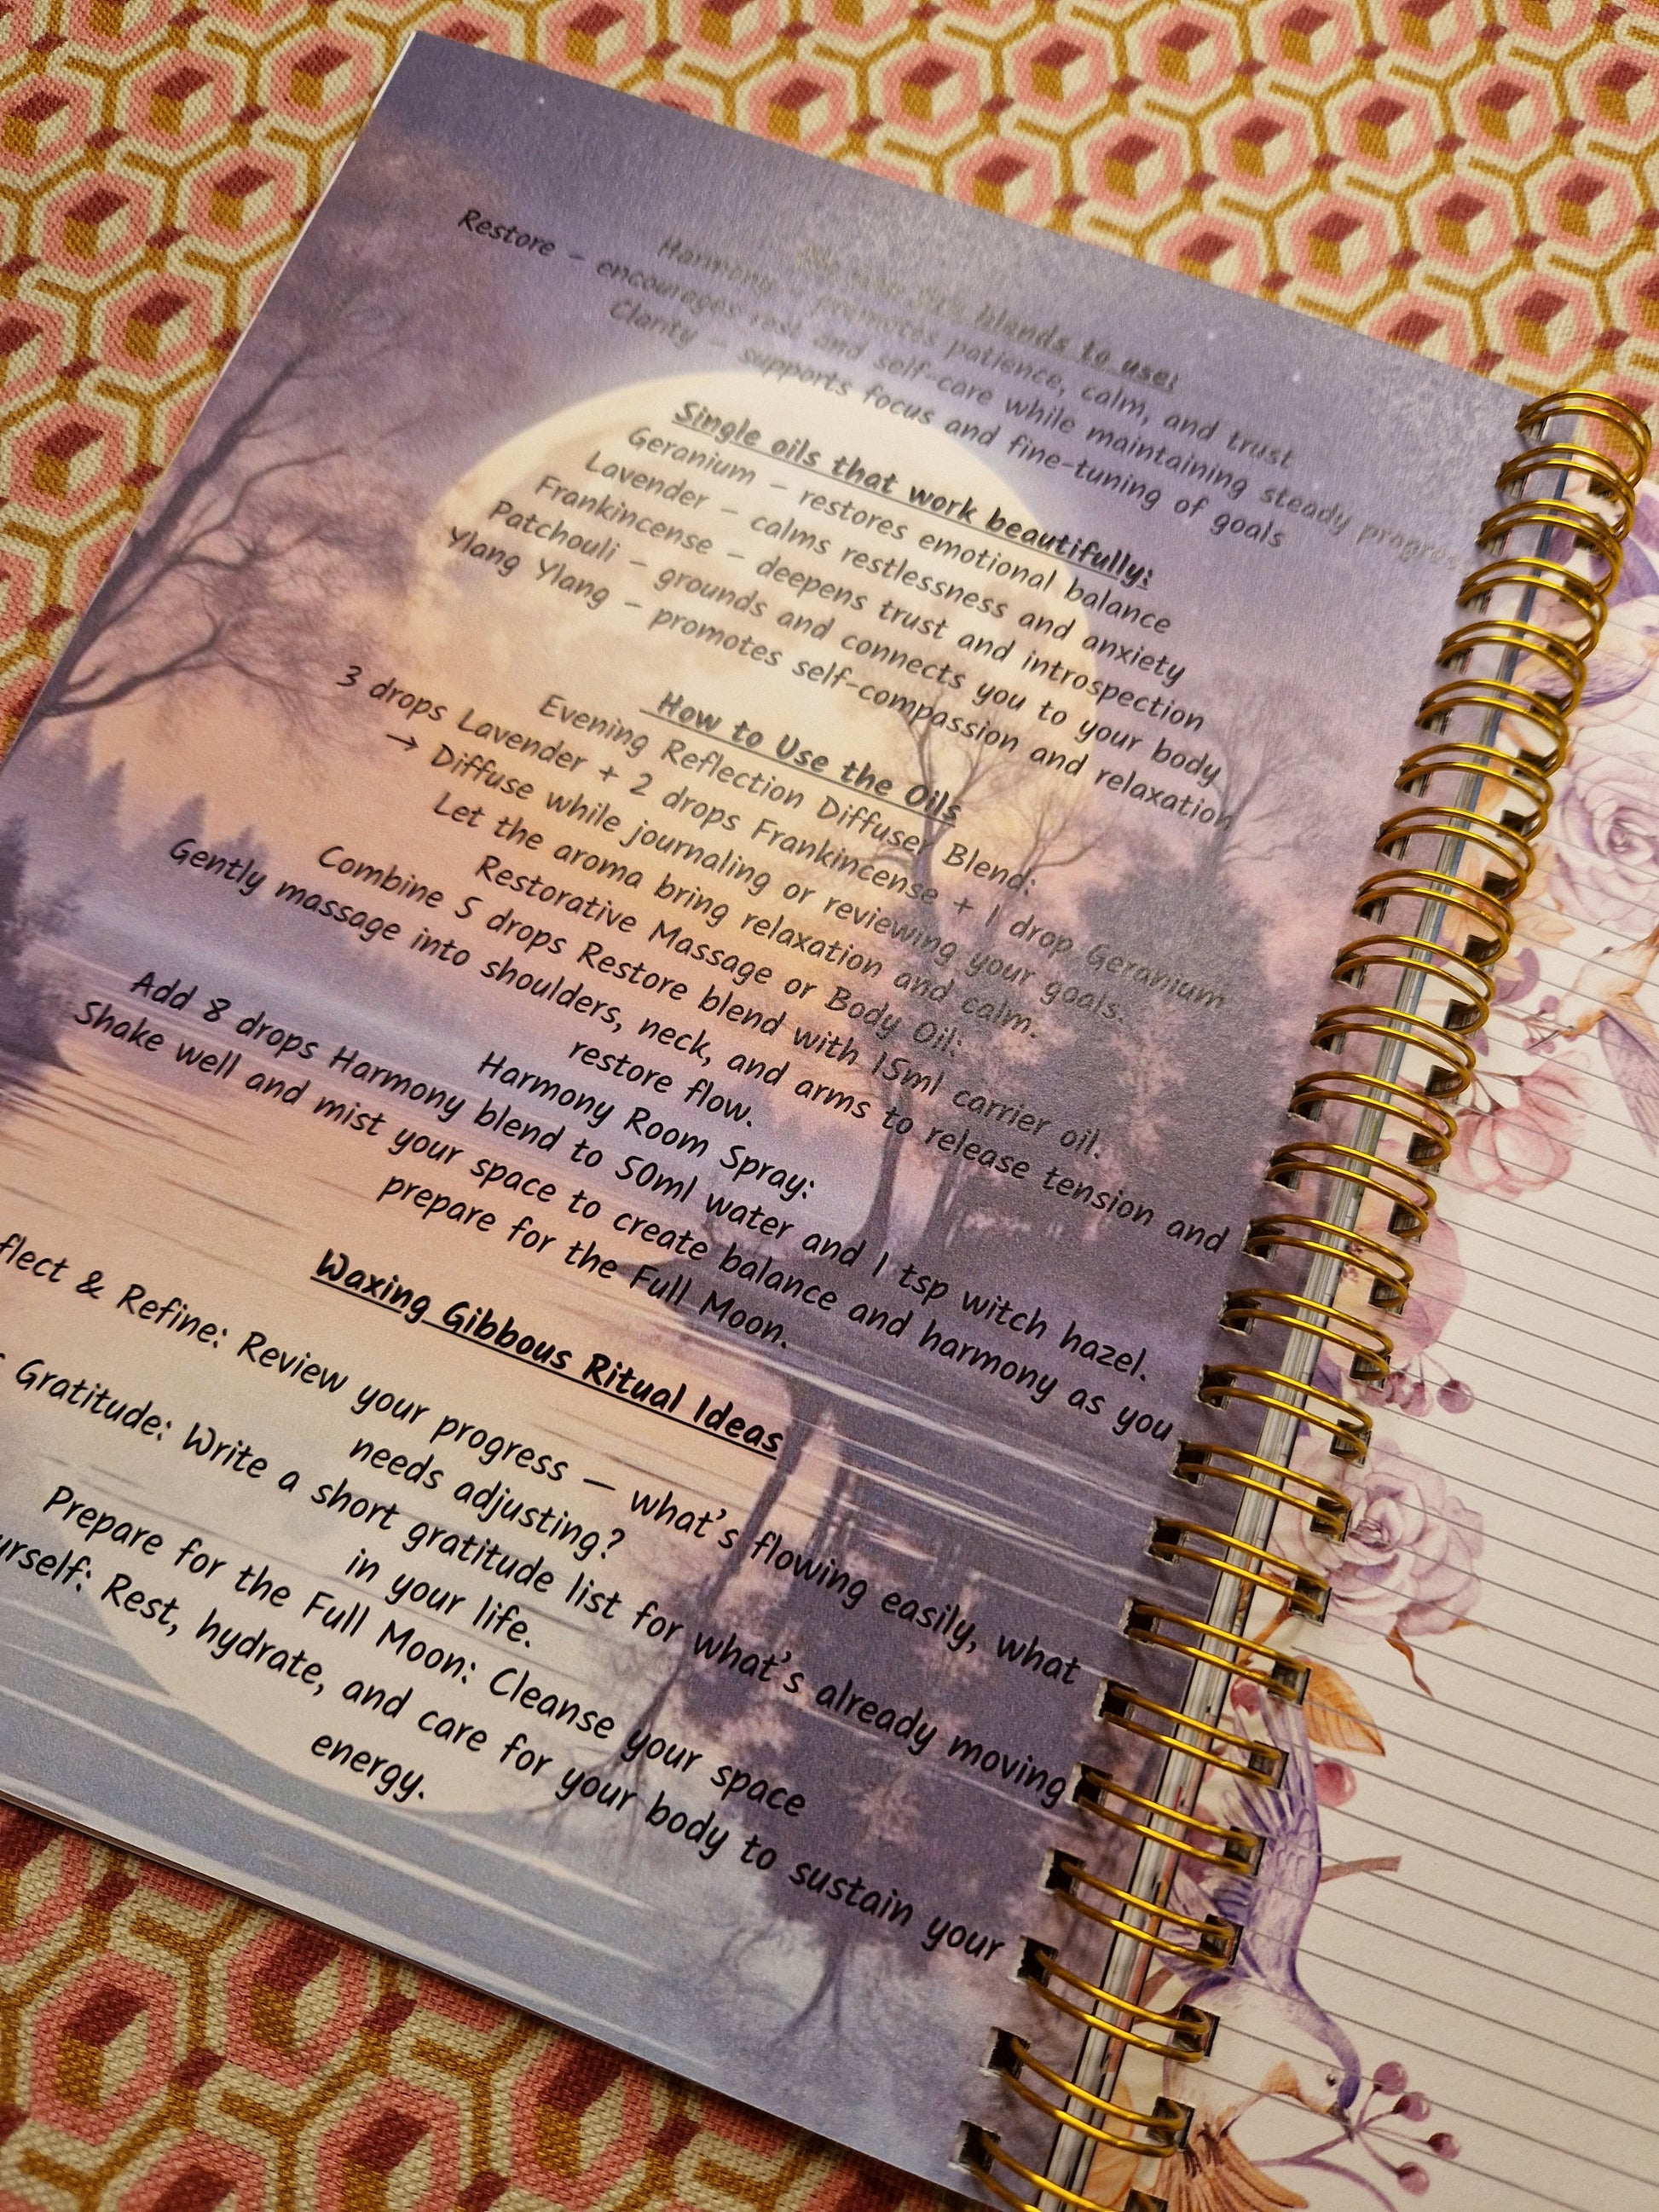 blends to use:
Harmony - promotes patience, calm, and trust
Restore - encourages rest and self-care while maintaining steady progress
Clarity - supports focus and fine-tuning of goals
Single oils that work beautifully:
Geranium - restores emotional balance
Lavender - calms restlessness and anxiety
Frankincense - deepens trust and introspection
Patchouli - grounds and connects you to your body
Ylang Ylang - promotes self-compassion and relaxation
How to Use the Oils
Evening Reflection Diffuser Blend:
3 drops Lavender + 2 drops Frankincense + 1 drop Geranium
→ Diffuse while journaling or reviewing your goals.
Let the aroma bring relaxation and calm.
Restorative Massage or Body Oil:
Combine 5 drops Restore blend with 15ml carrier oil.
Gently massage into shoulders, neck, and arms to release tension and
restore flow.
Harmony Room Spray:
Add 8 drops Harmony blend to 50ml water and 1 tsp witch hazel.
Shake well and mist your space to create balance and harmony as you
prepare for the Full Moon.
Waxing Gibbous Ritual Ideas
flect & Refine: Review your progress — what's flowing easily, what
needs adjusting?
Gratitude: Write a short gratitude list for what's already moving
in your life.
Prepare for the Full Moon: Cleanse your space
urself: Rest, hydrate, and care for your body to sustain your
energy.